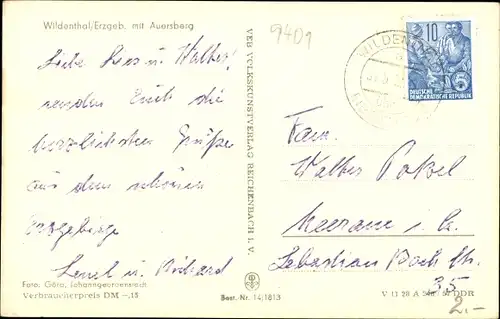 Wildenthal/Erzgeb. mit Auersberg
Liebe u. Walter!
senden Euch die
herzlichsten Grüße
aus dem schönen
Erzgebirge
u. Richard
Foto: Görn, Johanngeorgenstadt
Verbraucherpreis DM -,15
VEB VOLKSKUNSTVERLAG REICHENBACH I. V.
Best.-Nr. 14/1813
9401
WILDENTHAL
10
5
DEUTSCHE
DEMOKRATISCHE REPUBLIK
Fam.
Walter Pokel
Meerane i. Sa.
Sebastian Bach Str.
35
V 11 28 A DDR
2.-